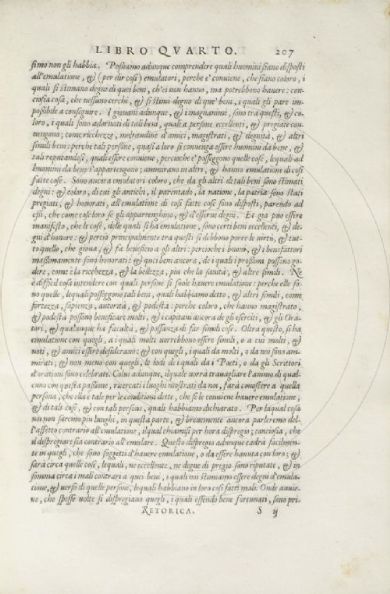 LIBRO QVARTO. 207
simo non gli habbia. Possiamo adunque comprendere quali huomini siano disposti
all'emulatione, & (per dir così) emulatori, perche è conviene, che siano coloro, i
quali si stimano degni di quei beni, ch'ei non hanno, ma potrebbono havere: con-
cosia cosa, che nessuno cerchi, & si stimi degno di que' beni, i quali gli pare im-
possibile a conseguire. I giovani adunque, & i magnanimi, sono tra questi, & co-
loro, i quali sono adornati di tali beni, quali a persone eccellenti, & pregiate con-
vengono; come ricchezze, moltitudine d'amici, magistrati, & dignità, & altri
simili beni: perche tali persone, quasi a loro si convenga essere huomini da bene, &
tali reputandosi, quali essere conviene, percioche è posseggono quelle cose, lequali ad
huomini da bene s'appartengono; ammirano in altri, & hanno emulatione di così
fatte cose. Sono ancora emulatori coloro, che da gli altri di tali beni sono stimati
degni: & coloro, di cui gli antichi, il parentado, la natione, la patria sono stati
pregiati, & honorati, all'emulatione di così fatte cose sono disposti, parendo ad
essi, che come tali cose se gli appartenghino, & d'esserne degni. Et gia puo essere
manifesto, che le cose, delle quali si ha emulatione, sono certi beni eccellenti, & de-
gni d'honore: & perciò principalmente tra questi si debbono porre le virtù, & tut-
to quello, che giova, & fa beneficio a gli altri: percioche i buoni, & i benefattori
massimamente sono honorati; & quei beni ancora, de i quali i prossimi possono go-
dere, come è la ricchezza, & la bellezza, piu che la sanità, & altre simili. Ne
è difficil cosa intendere con quali persone si suole havere emulatione: perche elle so-
no quelle, lequali posseggono tali beni, quali habbiamo detto, & altri simili, come
fortezza, sapienza, autorità, & podestà: perche coloro, che hanno magistrato,
& podestà possono beneficare molti, & i capitani ancora de gli eserciti, & gli Ora-
tori, & qualunque ha facultà, & possanza di far simili cose. Oltra questo, si ha
emulatione con quegli, a i quali molti vorrebbono essere simili, o a cui molti,
noti, & amici essere desiderano: & con quegli, i quali da molti, o da noi sono am-
mirati; & non meno con quegli, le lodi de i quali da i Poeti, o da gli Scrittori
d'orationi sono celebrate. Colui adunque, il quale vorrà tranquillare l'animo di qual-
cuno con questa passione, ricercati i luoghi mostrati da noi, farà conoscere a quella
persona, che ella è tale per le conditioni dette, che se le conviene havere emulatione,
& di tali cose, & con tali persone, quali habbiamo dichiarato. Per laqual cosa
noi non saremo piu lunghi, in questa parte, & brevemente ancora parleremo del-
l'affetto contrario all'emulatione, il qual chiamisi per hora dispregio; conciosia, che
il dispregiare sia contrario all'emulare. Questo dispregio adunque cadrà facilmen-
te in quegli, che sono soggetti d'havere emulatione, o da essere havuta con loro; &
sarà circa quelle cose, lequali, ne eccellente, ne degne di pregio sono riputate, & in
somma circa i mali contrari a quei beni, i quali noi stimiamo essere degni d'emula-
tione, & verso di quelle persone, lequali habbiano in loro così fatti mali. Onde avvie-
ne, che spesse volte si dispregiano quegli, i quali essendo bene fortunati, sono pri-
RETORICA. S ij